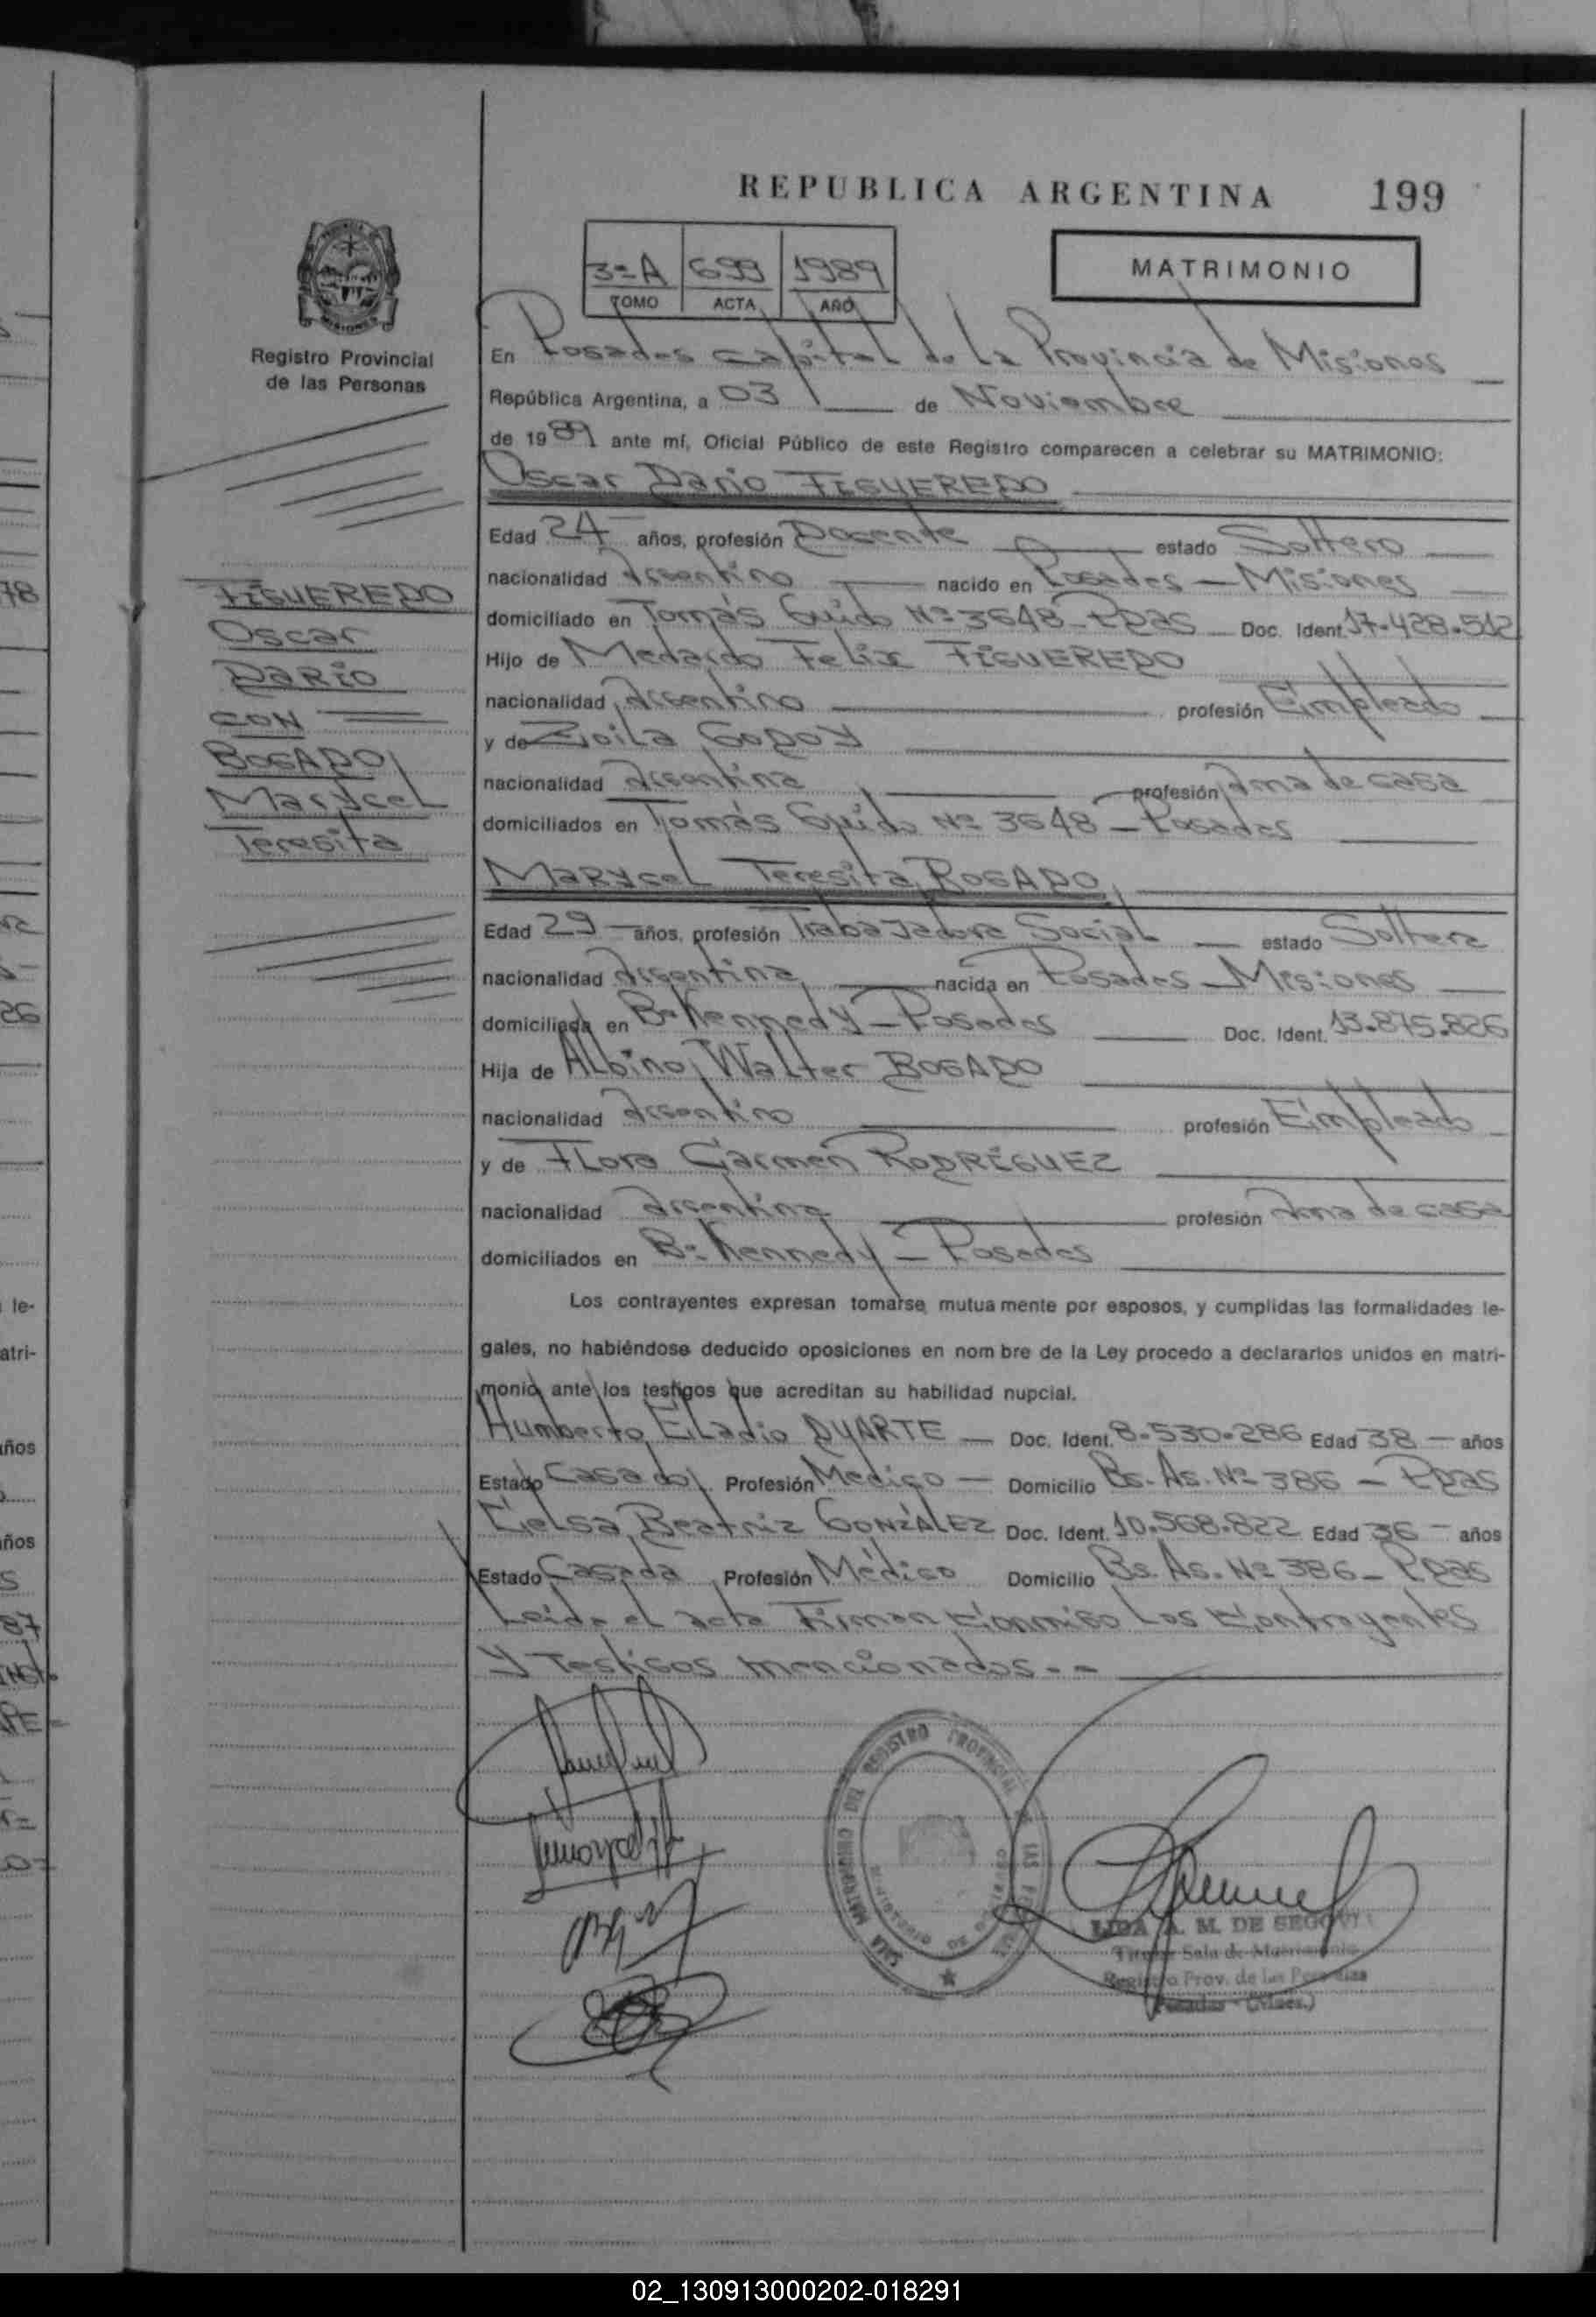 REPUBLICA ARGENTINA 199
3=A 699 1989
TOMO ACTA AÑO
MATRIMONIO
Registro Provincial
de las Personas
En Posadas Capital de la Provincia de Misiones
República Argentina, a 03 de Noviembre
de 1989 ante mí, Oficial Público de este Registro comparecen a celebrar su MATRIMONIO:
Oscar Dario FIGUEREDO
Edad 24 años, profesión Docente estado Soltero
nacionalidad Argentino nacido en Posadas - Misiones
domiciliado en Tomás Guido Nº 3648 - Pdas Doc. Ident. 17.428.512
Hijo de Medardo Felix FIGUEREDO
nacionalidad Argentino profesión Empleado
y de Zoila GODOY
nacionalidad Argentina profesión Ama de casa
domiciliados en Tomás Guido Nº 3648 - Posadas
FIGUEREDO
Oscar
DARIO
CON
BOGADO
Marycel
Teresita
Marycel Teresita BOGADO
Edad 29 años, profesión Trabajadora Social estado Soltera
nacionalidad Argentina nacida en Posadas - Misiones
domiciliada en Bº Kennedy - Posadas Doc. Ident. 13.875.826
Hija de Albino Walter BOGADO
nacionalidad Argentino profesión Empleado
y de Flora Carmen RODRÍGUEZ
nacionalidad Argentina profesión Ama de casa
domiciliados en Bº Kennedy - Posadas
Los contrayentes expresan tomarse mutuamente por esposos, y cumplidas las formalidades le-
gales, no habiéndose deducido oposiciones en nombre de la Ley procedo a declararlos unidos en matri-
monio ante los testigos que acreditan su habilidad nupcial.
Humberto Eladio DUARTE - Doc. Ident. 8.530.286 Edad 38 - años
Estado Casado Profesión Medico - Domicilio Bs. As. Nº 386 - Pdas
Elsa Beatriz GONZÁLEZ Doc. Ident. 10.568.822 Edad 36 - años
Estado Casada Profesión Médico Domicilio Bs. As. Nº 386 - Pdas
Leida el acta Firman Conmigo Los Contrayentes
Y Testigos mencionados.-
SALA MATRIMONIO DEL REGISTRO PROVINCIAL DE LAS
LIDA A. M. DE SEGOVIA
Titular Sala de Matrimonio
Registro Prov. de las Personas
Posadas - (Mnes.)
78
26
le-
atri-
años
años
87
02_130913000202-018291